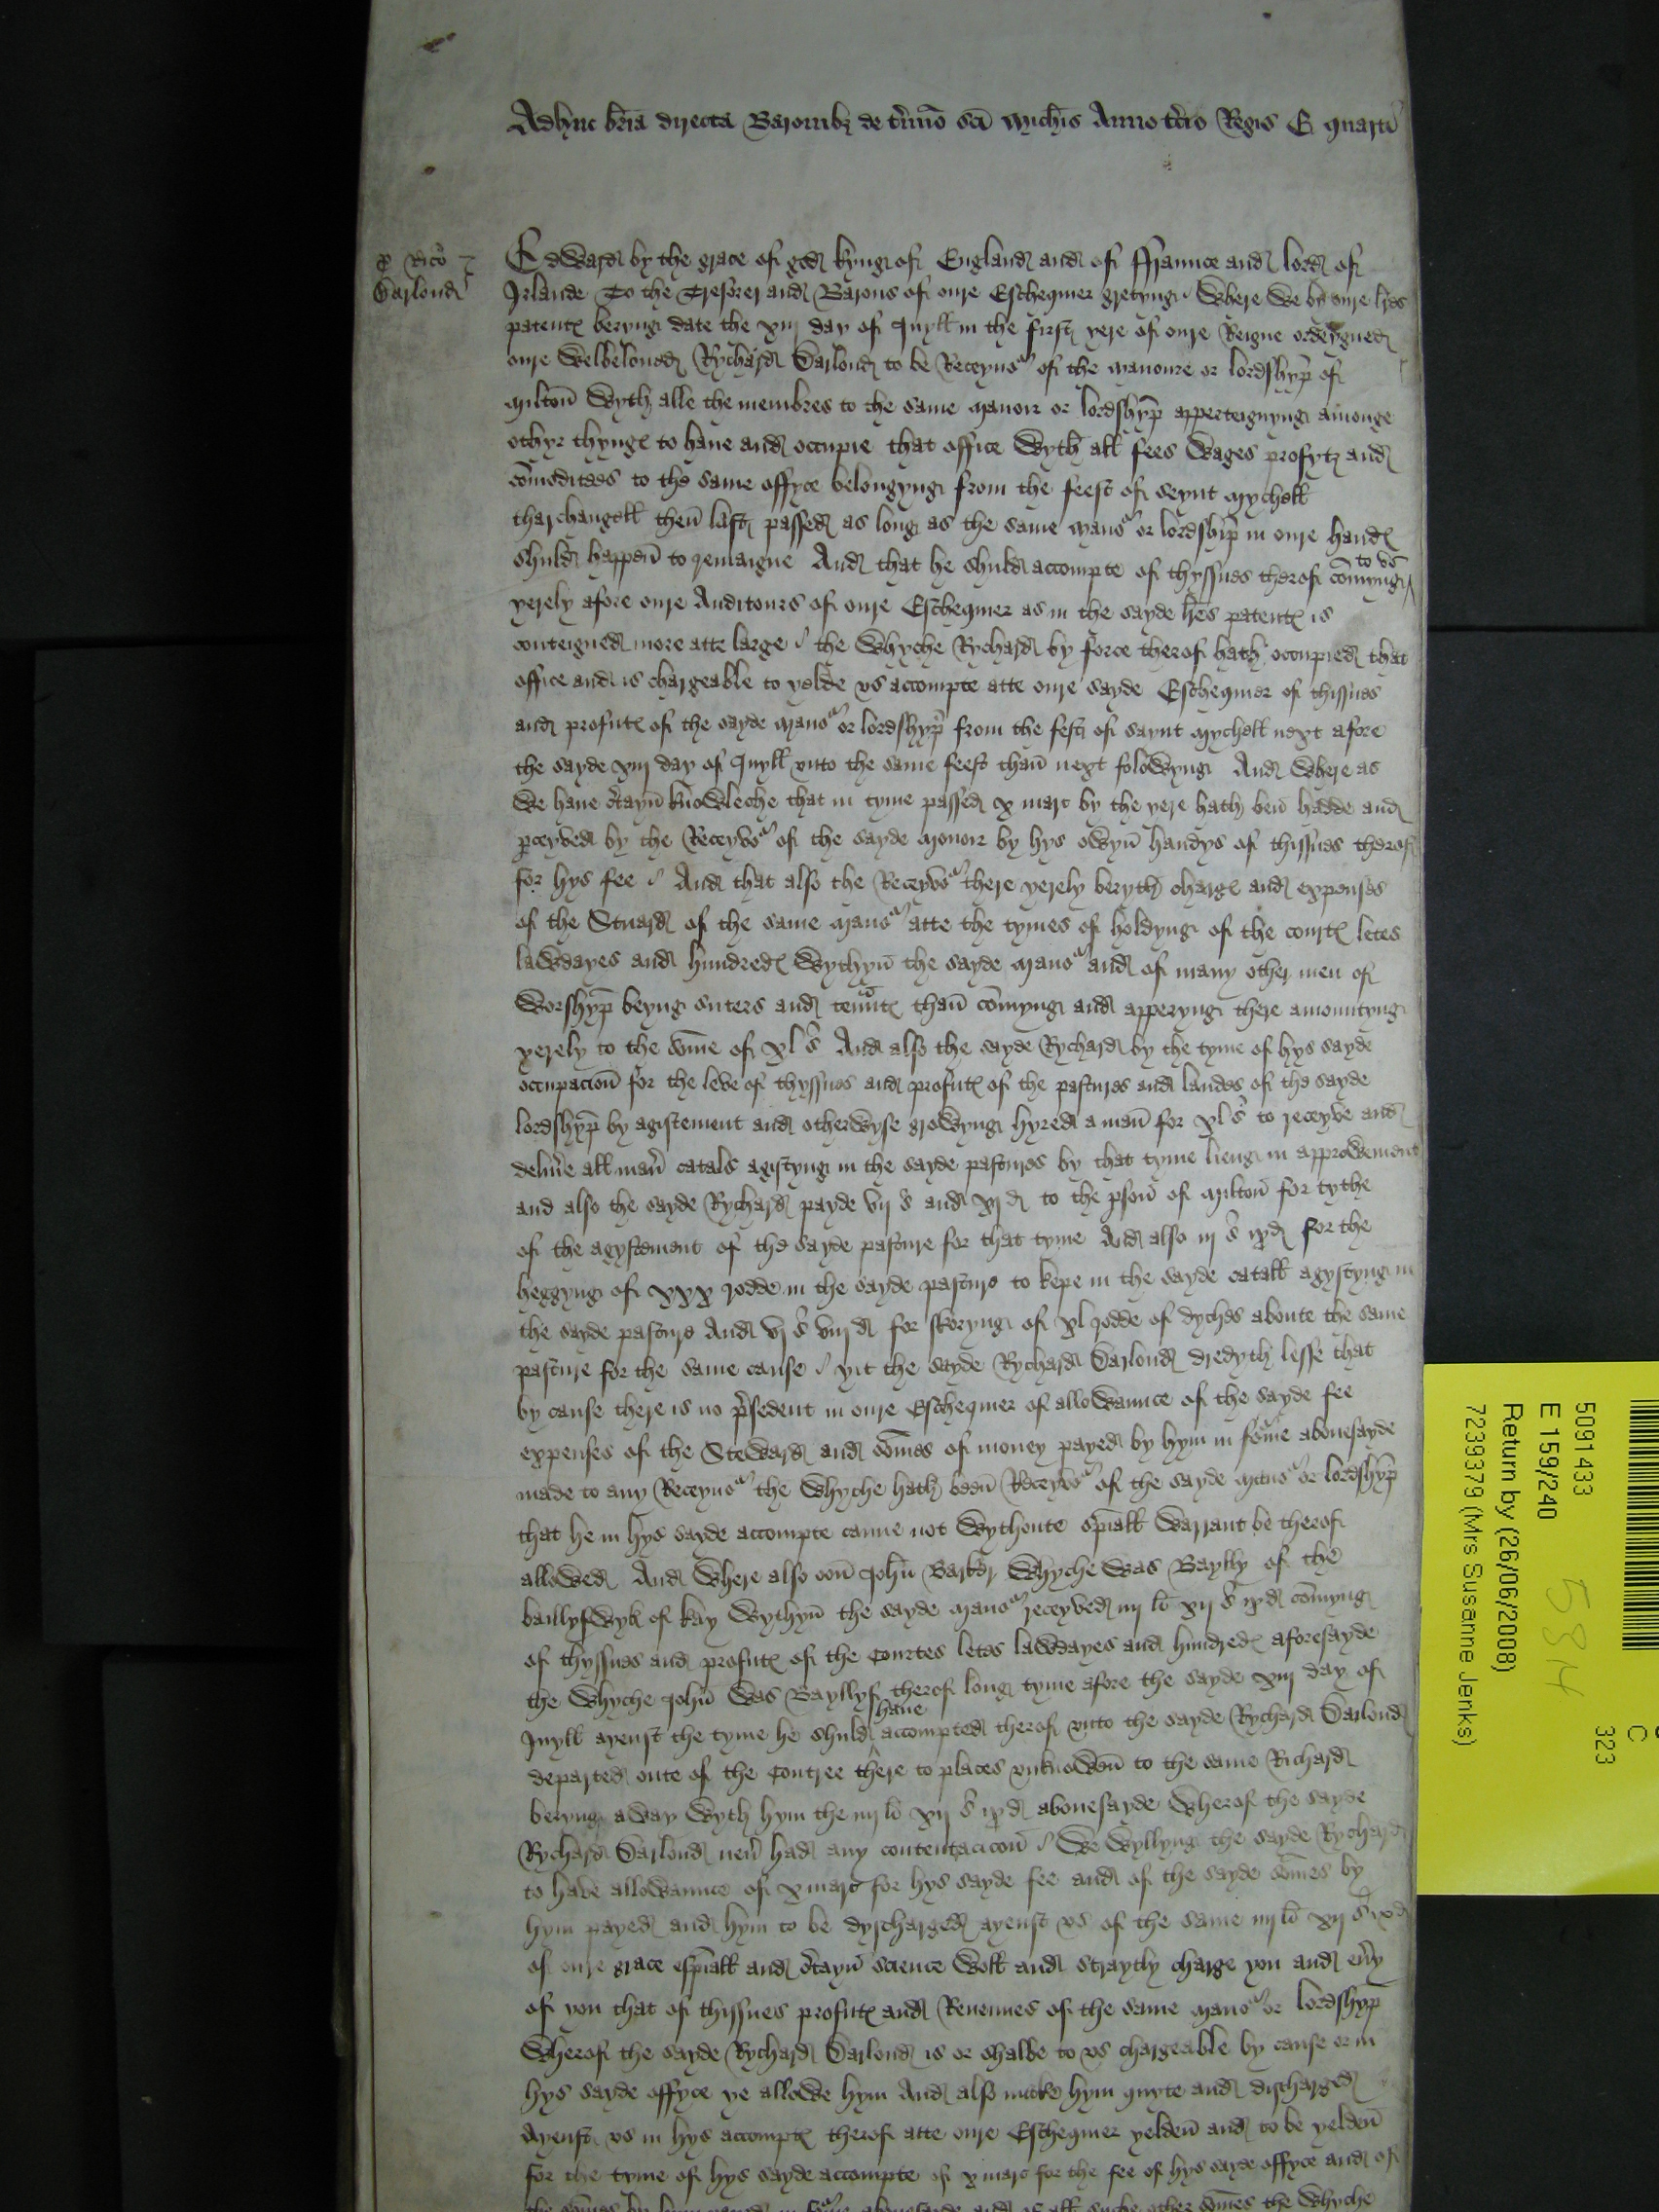 Adhuc bria directa Baronibz de tmino sci Michis Anno tcio Regis E quarti
p Rico
Darlond
Edward by the grace of god kyng of England and of Ffraunce and lord of
Irlande To the Tresorer and Barons of oure Eschequier gretyng Where we by oure lres
patentx beryng date the xiij day of Juyll in the first yere of oure Reigne ordeyned
oure welbeloued Rychard Darlond to be Receyuor of the manoure or lordshyp of
Milton wyth alle the membres to the same manoir or lordshyp apperteignyng amonge
othyr thynges to haue and occupie that office wyth all fees wages profytz and
comoditees to the same offyce belongyng from the feest of seynt Mychell
tharchangell then last passed as long as the same manor or lordship in oure handes
shuld happen to remaigne And that he shuld accompte of thyssues therof comyng to vs
yerely afore oure Auditours of oure Eschequier as in the sayde lres patentx is
conteigned more atte large the whyche Rychard by force therof hath occupied that
office and is chargeable to yelde vs accompte atte oure sayde Eschequier of thissues
and profutes of the sayde manor or lordshyp from the fest of saynt Mychell next afore
the sayde xiij day of Juyll vnto the same feest than next folowyng And where as
we haue ctayn knowleche that in tyme passed x marc by the yere hath ben hadde and
pceyved by the Receyvor of the sayde Monoir by hys owyn handys of thissues therof
for hys fee And that also the Receyvor there yerely beryth charges and expenses
of the Stuard of the same manor atte the tymes of holdyng of the courtes letes
lawdayes and hundredes wythyn the sayde manor and of many other men of
worshyp beyng suters and tenntes than comyng and apperyng there amountyng
yerely to the some of xl s And also the sayde Rychard by the tyme of hys sayde
occupacion for the leve of thyssues and profutes of the pastures and landes of the sayde
lordshyp by agistement and otherwyse growyng hyred a man for xl s to receyve and
delivre all man catals agistyng in the sayde pastures by that tyme lieng in approwement
and also the sayde Rychard payde vij s and xj d to the pson of Milton for tythe
of the agystement of the sayde pasture for that tyme And also iij s ix d for the
heggyng of xxx rodde in the sayde pasture to kepe in the sayde catall agystyng in
the sayde pasture And vj s viij d for skoryng of xl rodde of dyches aboute the same
pasture for the same cause yit the sayde Rychard Darlond dredyth lesse that
by cause there is no psedent in oure Eschequier of allowaunce of the sayde fee
expenses of the Steward and somes of money payed by hym in fourme abouesayde
made to any Receyuor the whyche hath been Receyvor of the sayde manor or lordshyp
that he in hys sayde accompte canne not wythoute spiall warrant be therof
allowed And where also oon John Barker whyche was Baylly of the
baillyfwyk of kay wythyn the sayde manor receyved iiij li xij s ix d comyng
of thyssues and profutes of the Courtes letes lawdayes and hundredes aforesayde
the whyche John was Bayllyf therof long tyme afore the sayde xiij day of
Juyll ayenst the tyme he shuld haue accompted therof vnto the sayde Rychard Darlond
departed oute of the Contree there to places vnknowen to the same Richard
beryng away wyth hym the iiij li xij s ix d abouesayde wherof the sayde
Rychard Darlond neu had any contentacion We wyllyng the sayde Rychard
to have allowaunce of x marc for hys sayde fee and of the sayde somes by
hym payed and hym to be dyscharged ayenst vs of the same iiij li xij s ix d
of oure grace espiall and ctayn science woll and straytly charge you and euy
of you that of thissues profutes and Reuenues of the same manor or lordshyp
wherof the sayde Rychard Darlond is or shalbe to vs chargeable by cause or in
hys sayde offyce ye allowe hym And also make hym quyte and discharged
Ayenst vs in hys accomptes therof atte oure Eschequier yelden and to be yelden
for the tyme of hys sayde accompte of x marc for the fee of hys sayde offyce and of
the somes by hym payed in fourme abouesayde and of all suche other somes the whyche
5091433
E 159/240
Return by (26/06/2008)
7239379 (Mrs Susanne Jenks)
C
323